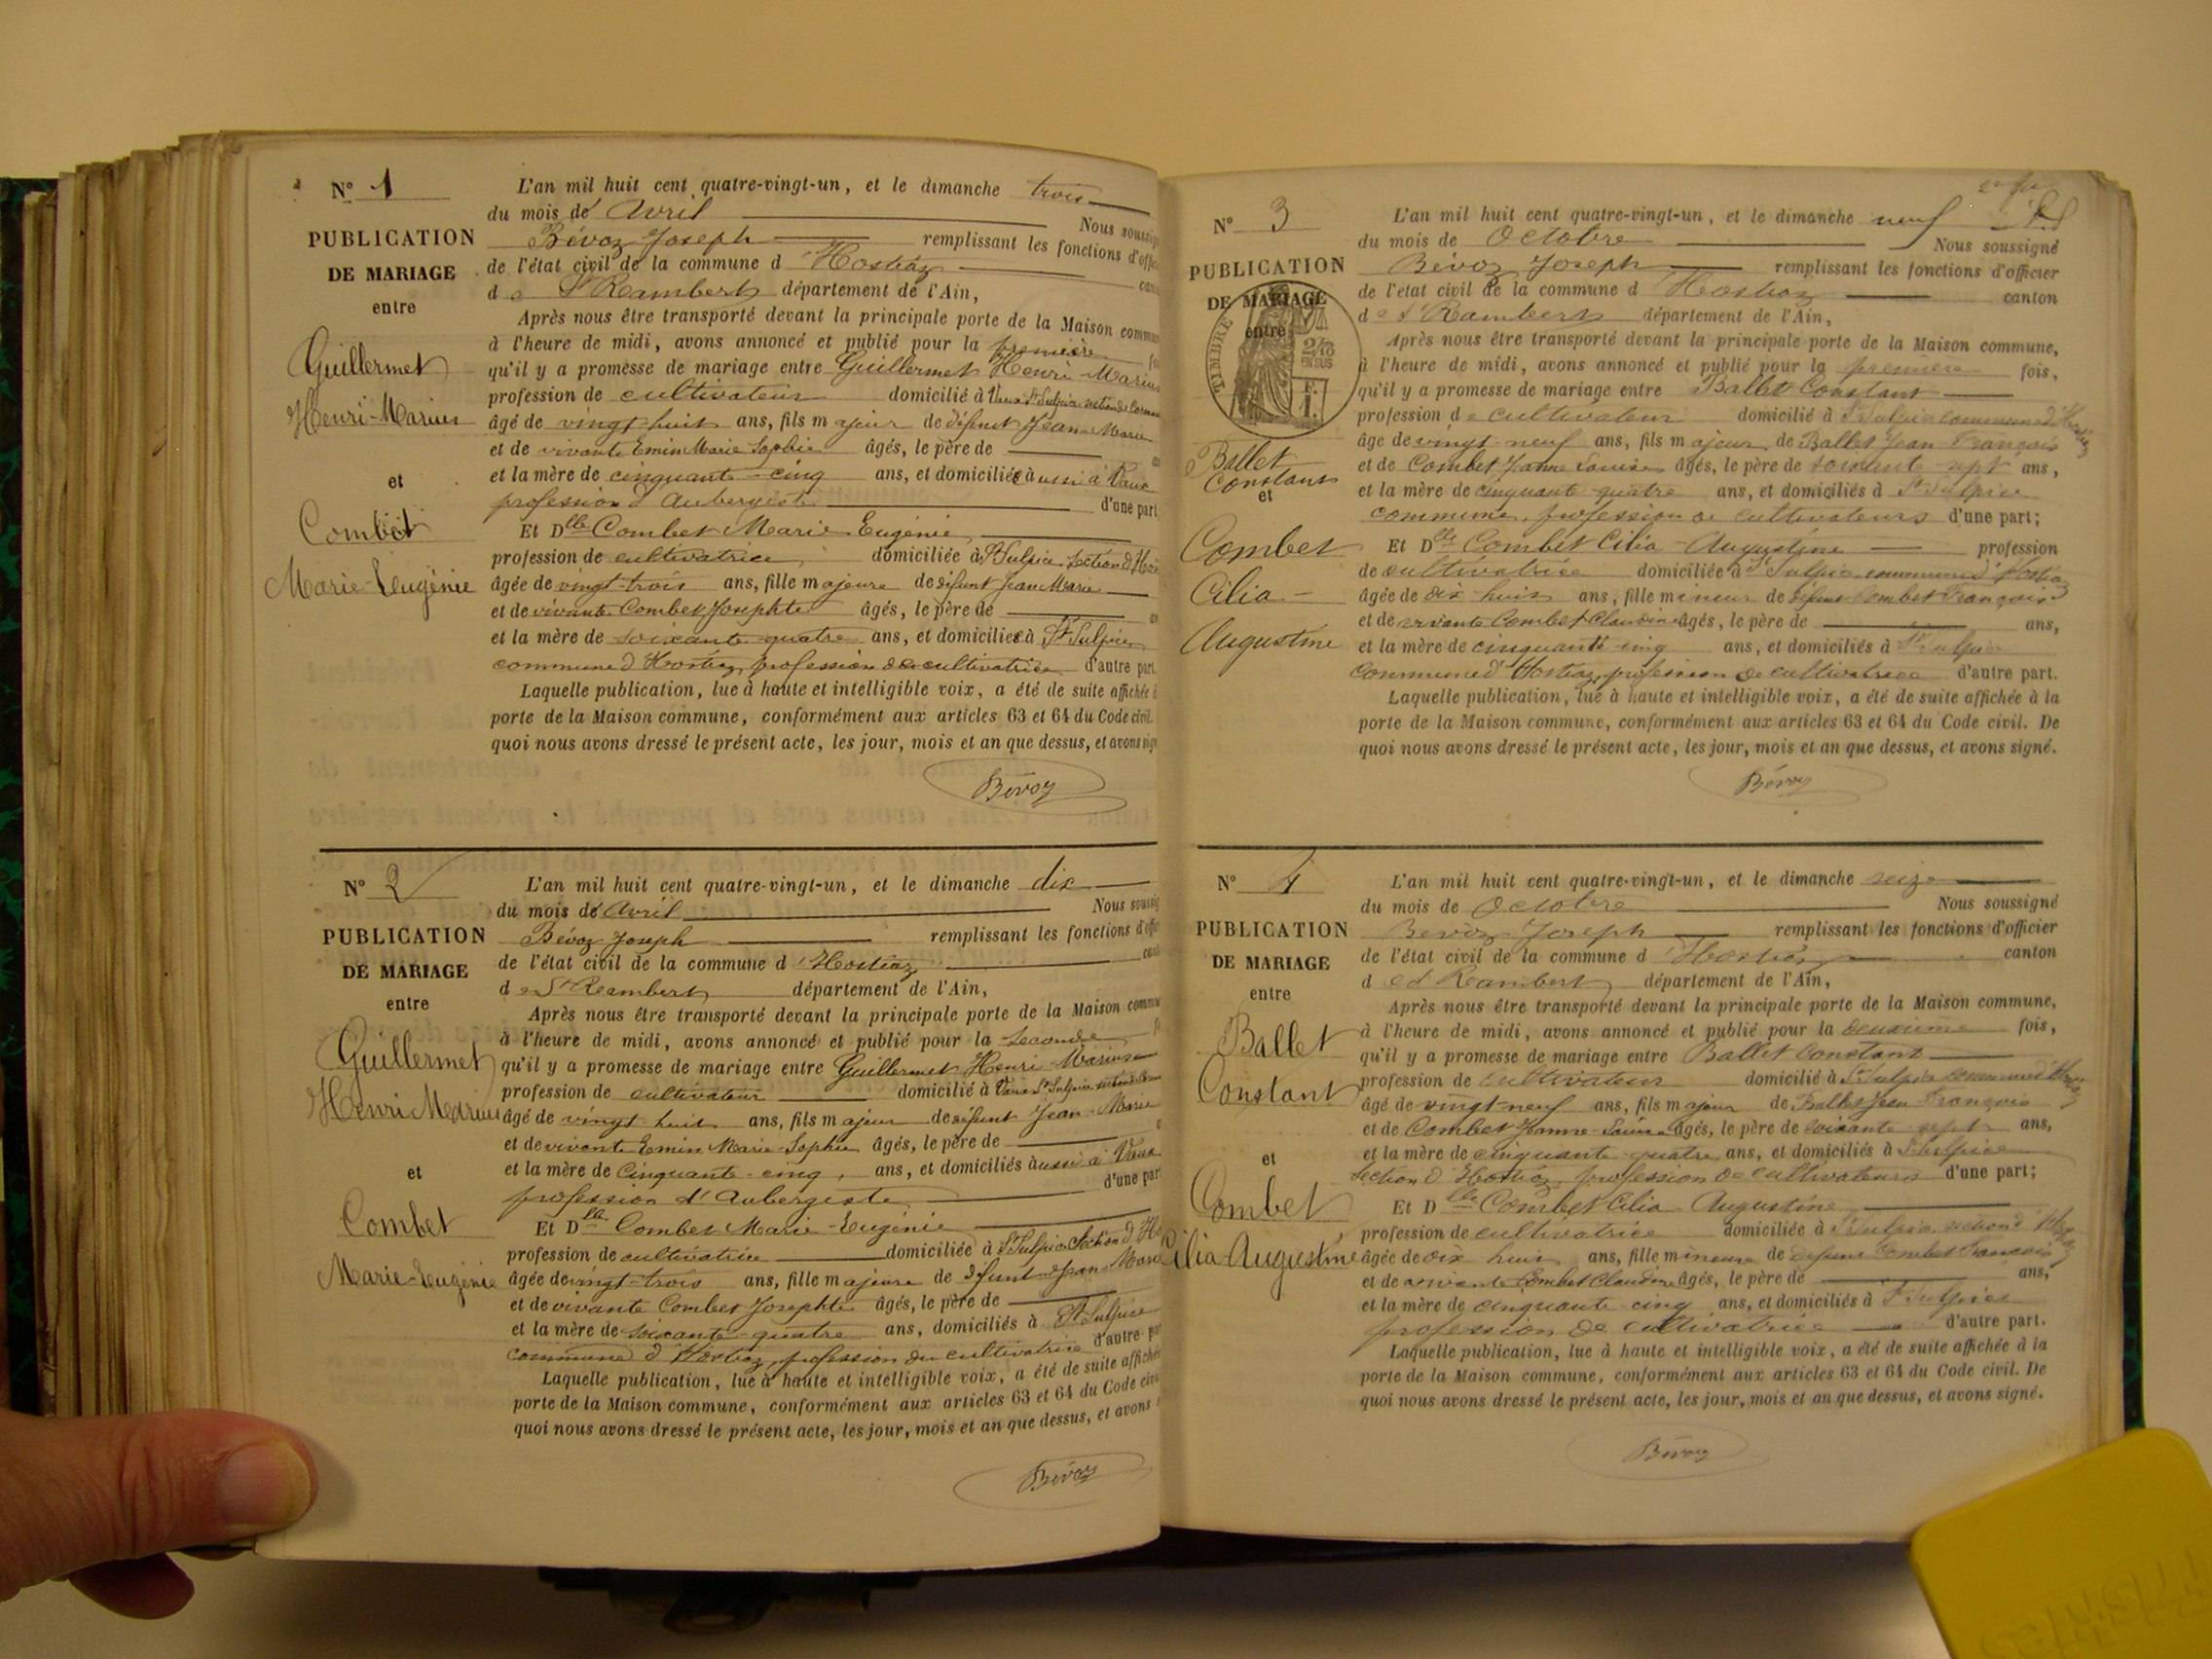 N° 1
PUBLICATION
DE MARIAGE
entre
Guillermet
Henri-Marius
et
Combet
Marie-Eugénie
L'an mil huit cent quatre-vingt-un, et le dimanche trois
du mois de Avril Nous soussig
Bévoz Joseph remplissant les fonctions d'offi
de l'état civil de la commune d 'Hostiaz can
de St Rambert département de l'Ain,
Après nous être transporté devant la principale porte de la Maison commun
à l'heure de midi, avons annoncé et publié pour la première fo
qu'il y a promesse de mariage entre Guillermet Henri-Marius
profession de cultivateur domicilié à Vaux St Sulpice
âgé de vingt-huit ans, fils majeur de défunt Jean-Marie
et de vivante Emin Marie Sophie âgés, le père de
et la mère de cinquante-cinq ans, et domiciliés aussi à Vaux
profession d'Aubergiste d'une part
Et Dlle Combet Marie Eugénie
profession de cultivatrice domiciliée à St Sulpice Section d'Hos
âgée de vingt-trois ans, fille majeure de défunt Jean Marie
et de vivante Combet Josephte âgés, le père de
et la mère de soixante-quatre ans, et domiciliés à St Sulpice
commune d'Hostiaz, profession de cultivatrice d'autre part.
Laquelle publication, lue à haute et intelligible voix, a été de suite affichée à
porte de la Maison commune, conformément aux articles 63 et 64 du Code civil.
quoi nous avons dressé le présent acte, les jour, mois et an que dessus, et avons sig
Bévoz
N° 2
PUBLICATION
DE MARIAGE
entre
Guillermet
Henri Marius
et
Combet
Marie-Eugénie
L'an mil huit cent quatre-vingt-un, et le dimanche dix
du mois de Avril Nous soussig
Bévoz Joseph remplissant les fonctions d'offi
de l'état civil de la commune d 'Hostiaz can
de St Rambert département de l'Ain,
Après nous être transporté devant la principale porte de la Maison commu
à l'heure de midi, avons annoncé et publié pour la seconde f
qu'il y a promesse de mariage entre Guillermet Henri-Marius
profession de cultivateur domicilié à Vaux St Sulpice
âgé de vingt huit ans, fils majeur de défunt Jean-Marie
et de vivante Emin Marie-Sophie âgés, le père de
et la mère de Cinquante-cinq, ans, et domiciliés aussi à Vaux
profession d'Aubergiste d'une par
Et Dlle Combet Marie-Eugénie
profession de cultivatrice domiciliée à St Sulpice Section d'Ho
âgée de vingt-trois ans, fille majeure de défunt Jean-Marie
et de vivante Combet Josephte âgés, le père de
et la mère de soixante-quatre ans, domiciliés à St Sulpice
commune d'Hostiaz, profession de cultivatrice d'autre par
Laquelle publication, lue à haute et intelligible voix, a été de suite affichée
porte de la Maison commune, conformément aux articles 63 et 64 du Code civi
quoi nous avons dressé le présent acte, les jour, mois et an que dessus, et avons
Bévoz
N° 3
PUBLICATION
DE MARIAGE
entre
TIMBRE
2/10
EN SUS
F.
1.
Ballet
Constant
et
Combet
Cilia-
Augustine
L'an mil huit cent quatre-vingt-un, et le dimanche neuf
du mois de Octobre Nous soussigné
Bévoz Joseph remplissant les fonctions d'officier
de l'état civil de la commune d 'Hostiaz canton
de St Rambert département de l'Ain,
Après nous être transporté devant la principale porte de la Maison commune,
à l'heure de midi, avons annoncé et publié pour la première fois,
qu'il y a promesse de mariage entre Ballet Constant
profession de cultivateur domicilié à St Sulpice commune d'Hostiaz
âgé de vingt-neuf ans, fils majeur de Ballet Jean François
et de Combet Jeanne Louise âgés, le père de soixante-sept ans,
et la mère de cinquante quatre ans, et domiciliés à St Sulpice
commune, profession de cultivateurs d'une part;
Et Dlle Combet Cilia-Augustine profession
de cultivatrice domiciliée à St Sulpice commune d'Hostiaz
âgée de dix-huit ans, fille mineur de défunt Combet François
et de vivante Combet Claudine âgés, le père de ans,
et la mère de cinquante-cinq ans, et domiciliés à St Sulpice
commune d'Hostiaz, profession de cultivatrice d'autre part.
Laquelle publication, lue à haute et intelligible voix, a été de suite affichée à la
porte de la Maison commune, conformément aux articles 63 et 64 du Code civil. De
quoi nous avons dressé le présent acte, les jour, mois et an que dessus, et avons signé.
Bévoz
N° 4
PUBLICATION
DE MARIAGE
entre
Ballet
Constant
et
Combet
Cilia Augustine
L'an mil huit cent quatre-vingt-un, et le dimanche seize
du mois de Octobre Nous soussigné
Bévoz Joseph remplissant les fonctions d'officier
de l'état civil de la commune d 'Hostiaz canton
de St Rambert département de l'Ain,
Après nous être transporté devant la principale porte de la Maison commune,
à l'heure de midi, avons annoncé et publié pour la deuxième fois,
qu'il y a promesse de mariage entre Ballet Constant
profession de cultivateur domicilié à St Sulpice commune d'Hostiaz
âgé de vingt-neuf ans, fils majeur de Ballet Jean François
et de Combet Jeanne-Louise âgés, le père de soixante-sept ans,
et la mère de cinquante-quatre ans, et domiciliés à St Sulpice
Section d'Hostiaz profession de cultivateurs d'une part;
Et Dlle Combet Cilia Augustine
profession de cultivatrice domiciliée à St Sulpice section d'Hostiaz
âgée de dix huit ans, fille mineure de défunt Combet François
et de vivante Combet Claudine âgés, le père de ans,
et la mère de cinquante-cinq ans, et domiciliés à St Sulpice
profession de cultivatrice d'autre part.
Laquelle publication, lue à haute et intelligible voix, a été de suite affichée à la
porte de la Maison commune, conformément aux articles 63 et 64 du Code civil. De
quoi nous avons dressé le présent acte, les jour, mois et an que dessus, et avons signé.
Bévoz